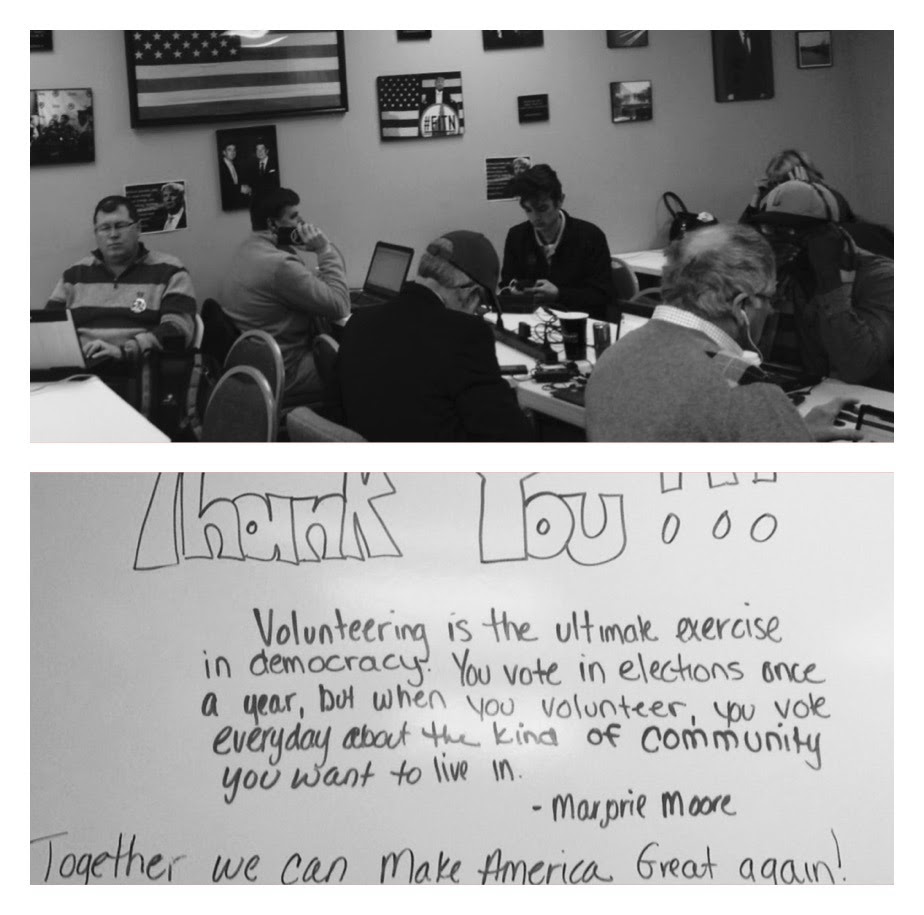 #FITN
Thank You!!!
Volunteering is the ultimate exercise
in democracy. You vote in elections once
a year, but when you volunteer, you vote
everyday about the kind of community
you want to live in.
- Marjorie Moore
Together we can Make America Great again!